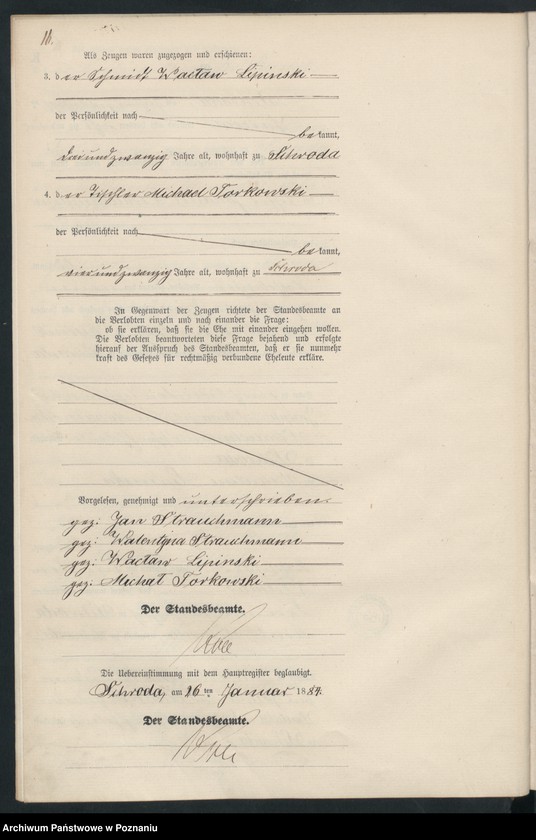 16.
Als Zeugen waren zugezogen und erschienen:
3. der Schmidt Wacław Lipinski
der Persönlichkeit nach
bekannt,
dreiundzwanzig Jahre alt, wohnhaft zu Schroda
4. der Tischler Michael Torkowski
der Persönlichkeit nach
bekannt,
vierundzwanzig Jahre alt, wohnhaft zu Schroda
In Gegenwart der Zeugen richtete der Standesbeamte an
die Verlobten einzeln und nach einander die Frage:
ob sie erklären, daß sie die Ehe mit einander eingehen wollen.
Die Verlobten beantworteten diese Frage bejahend und erfolgte
hierauf der Ausspruch des Standesbeamten, daß er sie nunmehr
kraft des Gesetzes für rechtmäßig verbundene Eheleute erkläre.
Vorgelesen, genehmigt und unterschrieben
gez: Jan Strauchmann
gez: Walentyna Strauchmann
gez: Wacław Lipinski
gez: Michał Torkowski
Der Standesbeamte.
Die Uebereinstimmung mit dem Hauptregister beglaubigt.
Schroda, am 26ten Januar 1884.
Der Standesbeamte.
Archiwum Państwowe w Poznaniu